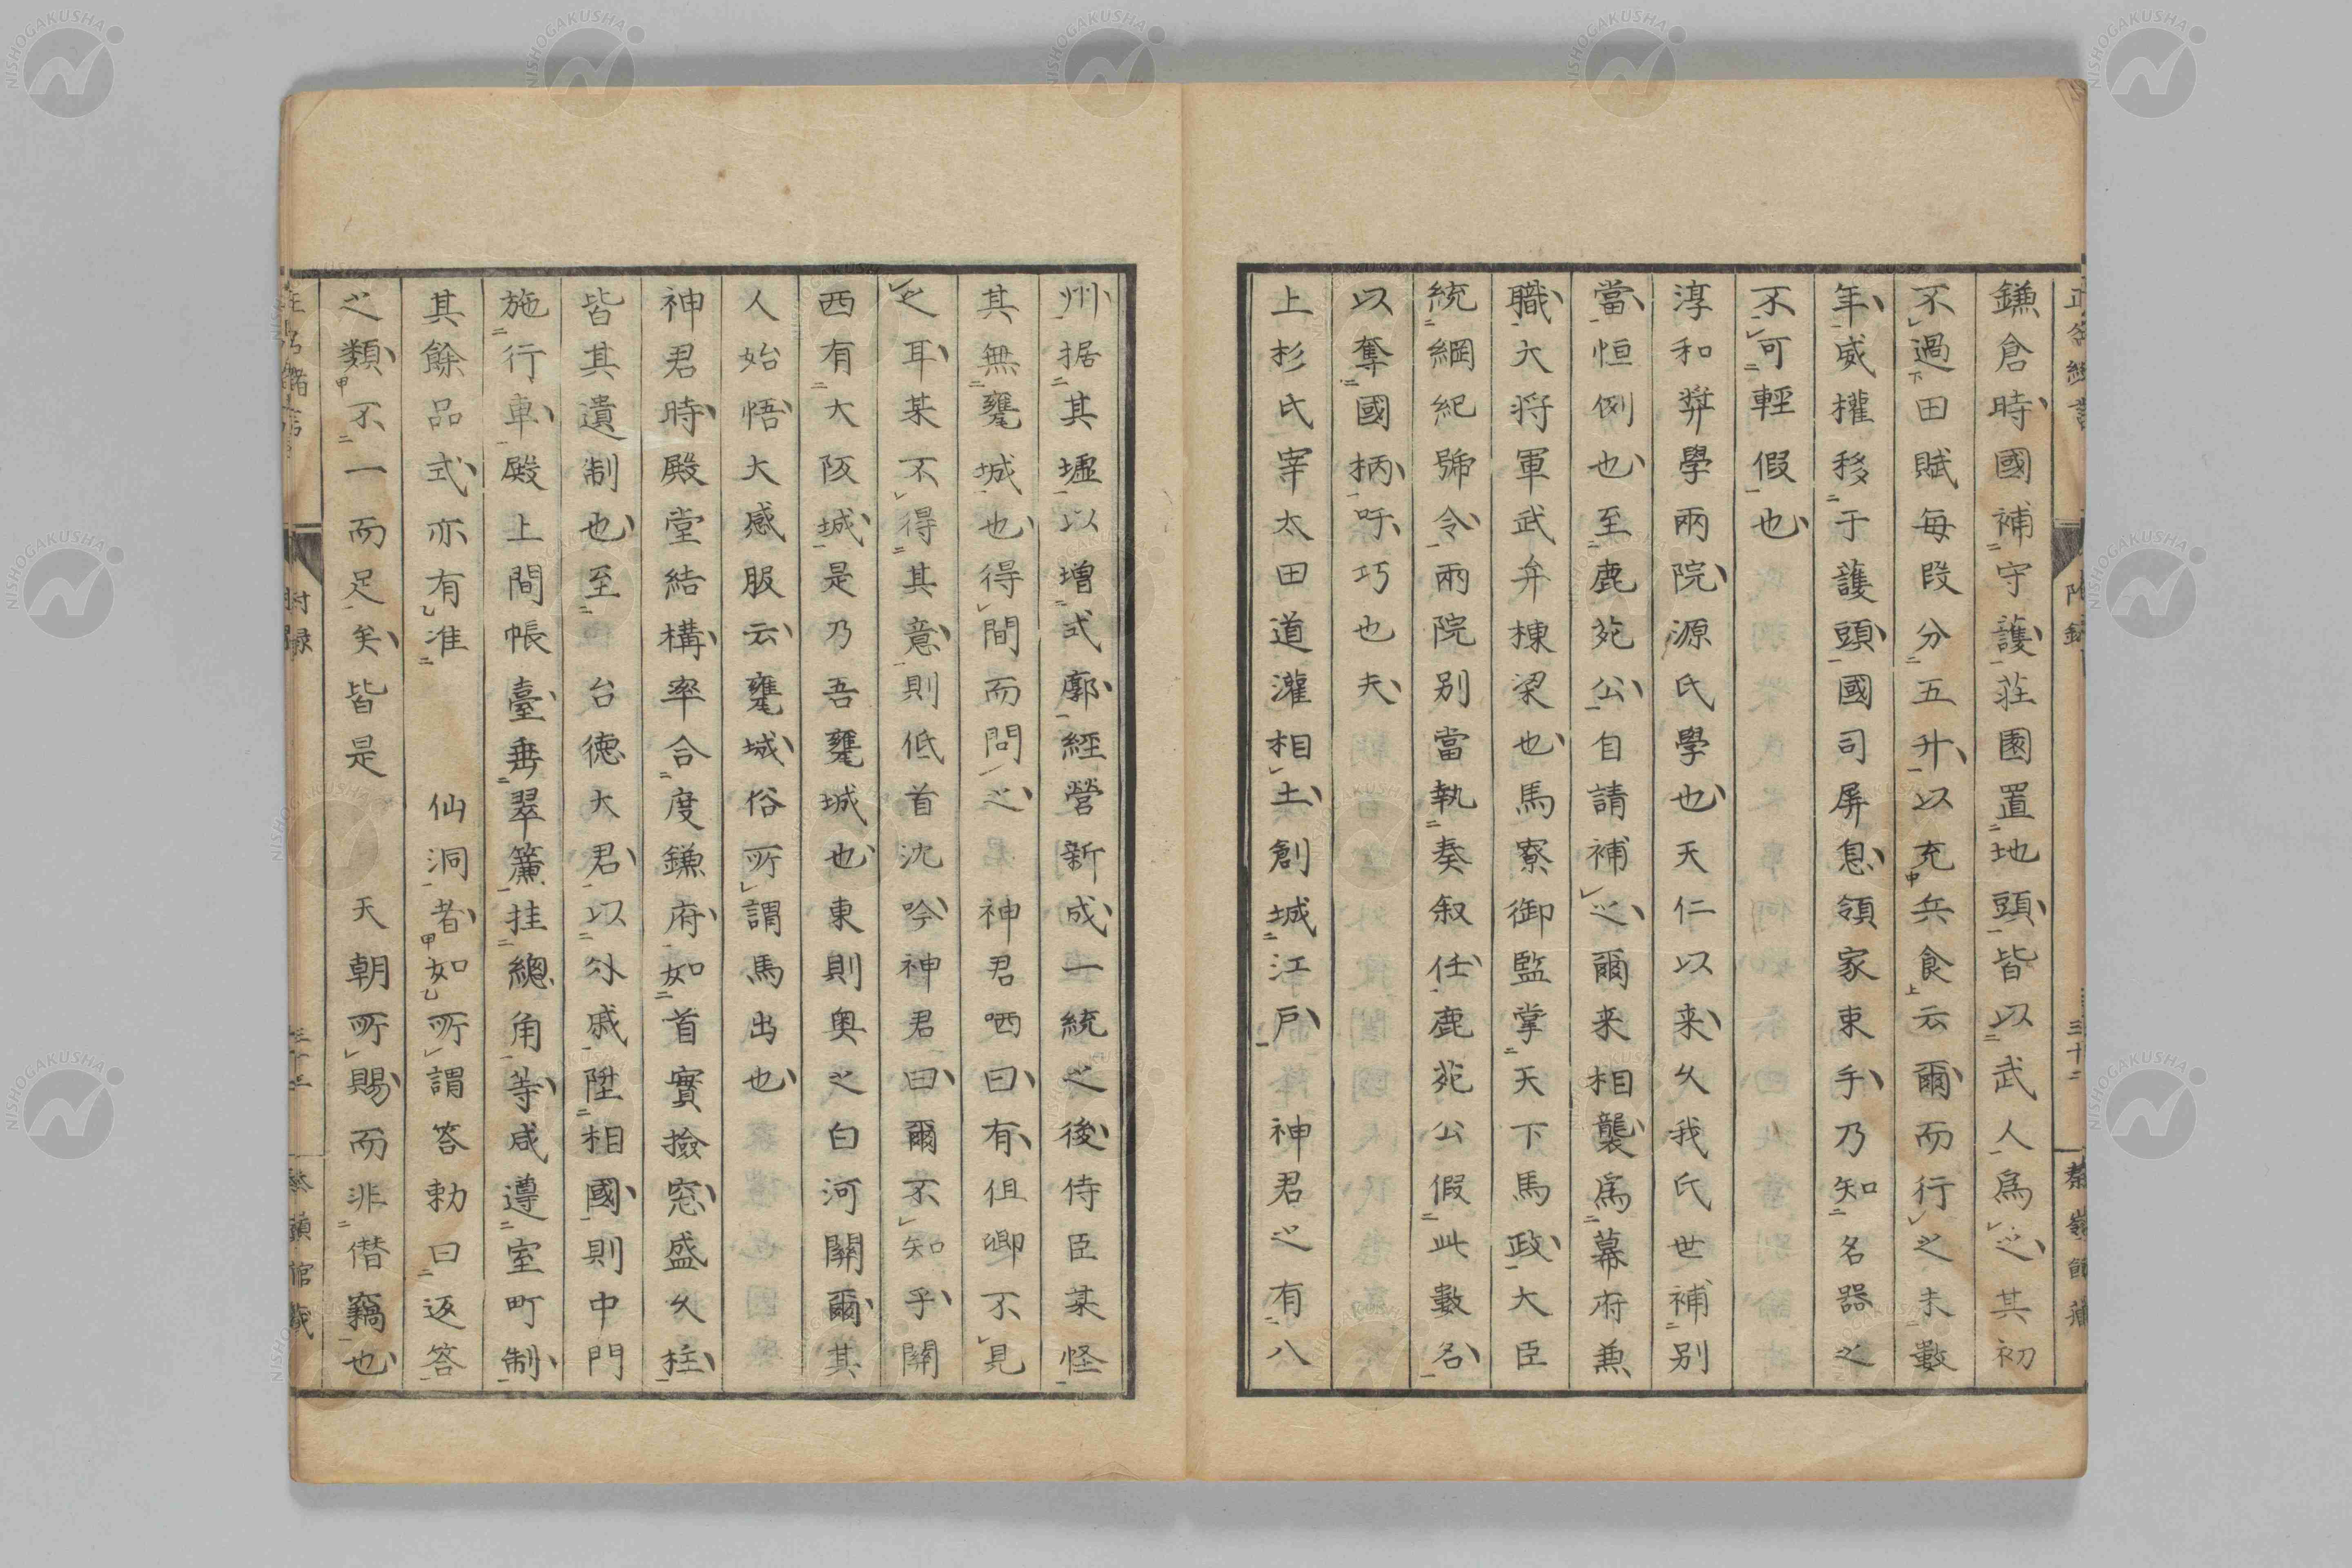 鎌倉時國補守護荘園置地頭皆以武人爲之其初
不過田賦毎段分五升以充兵食云爾而行之未數
年威權移于護頭國司屏息領家束手乃知名器之
不可輕假也
淳和弉學兩院源氏學也天仁以来久我氏世補别
當恒例也至鹿苑公自請補之爾来相襲爲幕府兼
職大将軍武弁棟梁也馬寮御監掌天下馬政大臣
統綱紀號令兩院别當執奏叙任鹿苑公假此數名
以奪國柄吁巧也夫
上杉氏宰太田道灌相土創城江戸神君之有八
州据其墟以増式廓經營新成一統之後侍臣某怪
其無甕城也得間而問之神君哂曰有但卿不見
之耳某不得其意則低首沈吟神君曰爾不知乎關
西有大阪城是乃吾甕城也東則奥之白河關爾其
人始悟大感服云甕城俗所謂馬出也
神君時殿堂結構率合度鎌府如首實撿窓盛久柱
皆其遺制也至台德大君以外戚陞相國則中門
施行車殿上間帳臺垂翠簾挂總角等咸遵室町制
其餘品式亦有准仙洞者如所謂答勅曰返答
之類不一而足矣皆是天朝所賜而非僭竊也
附録